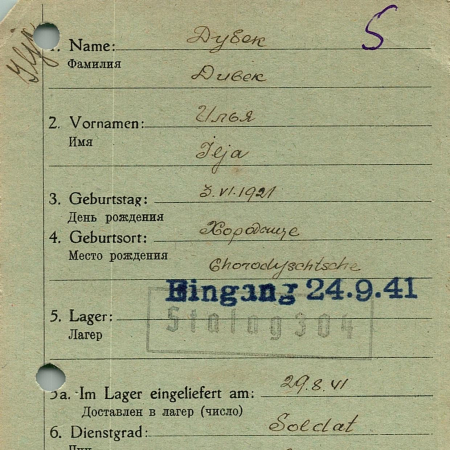 Ilja
S
1. Name: Дубек
Фамилия Дивек
2. Vornamen: Илья
Имя Ilja
3. Geburtstag: 3.VI.1921
День рождения
4. Geburtsort: Хородище
Место рождения Chorodyschtsche
Eingang 24.9.41
5. Lager: Stalag 304
Лагер
5a. Im Lager eingeliefert am: 29.8.41
Доставлен в лагер (число)
6. Dienstgrad: Soldat